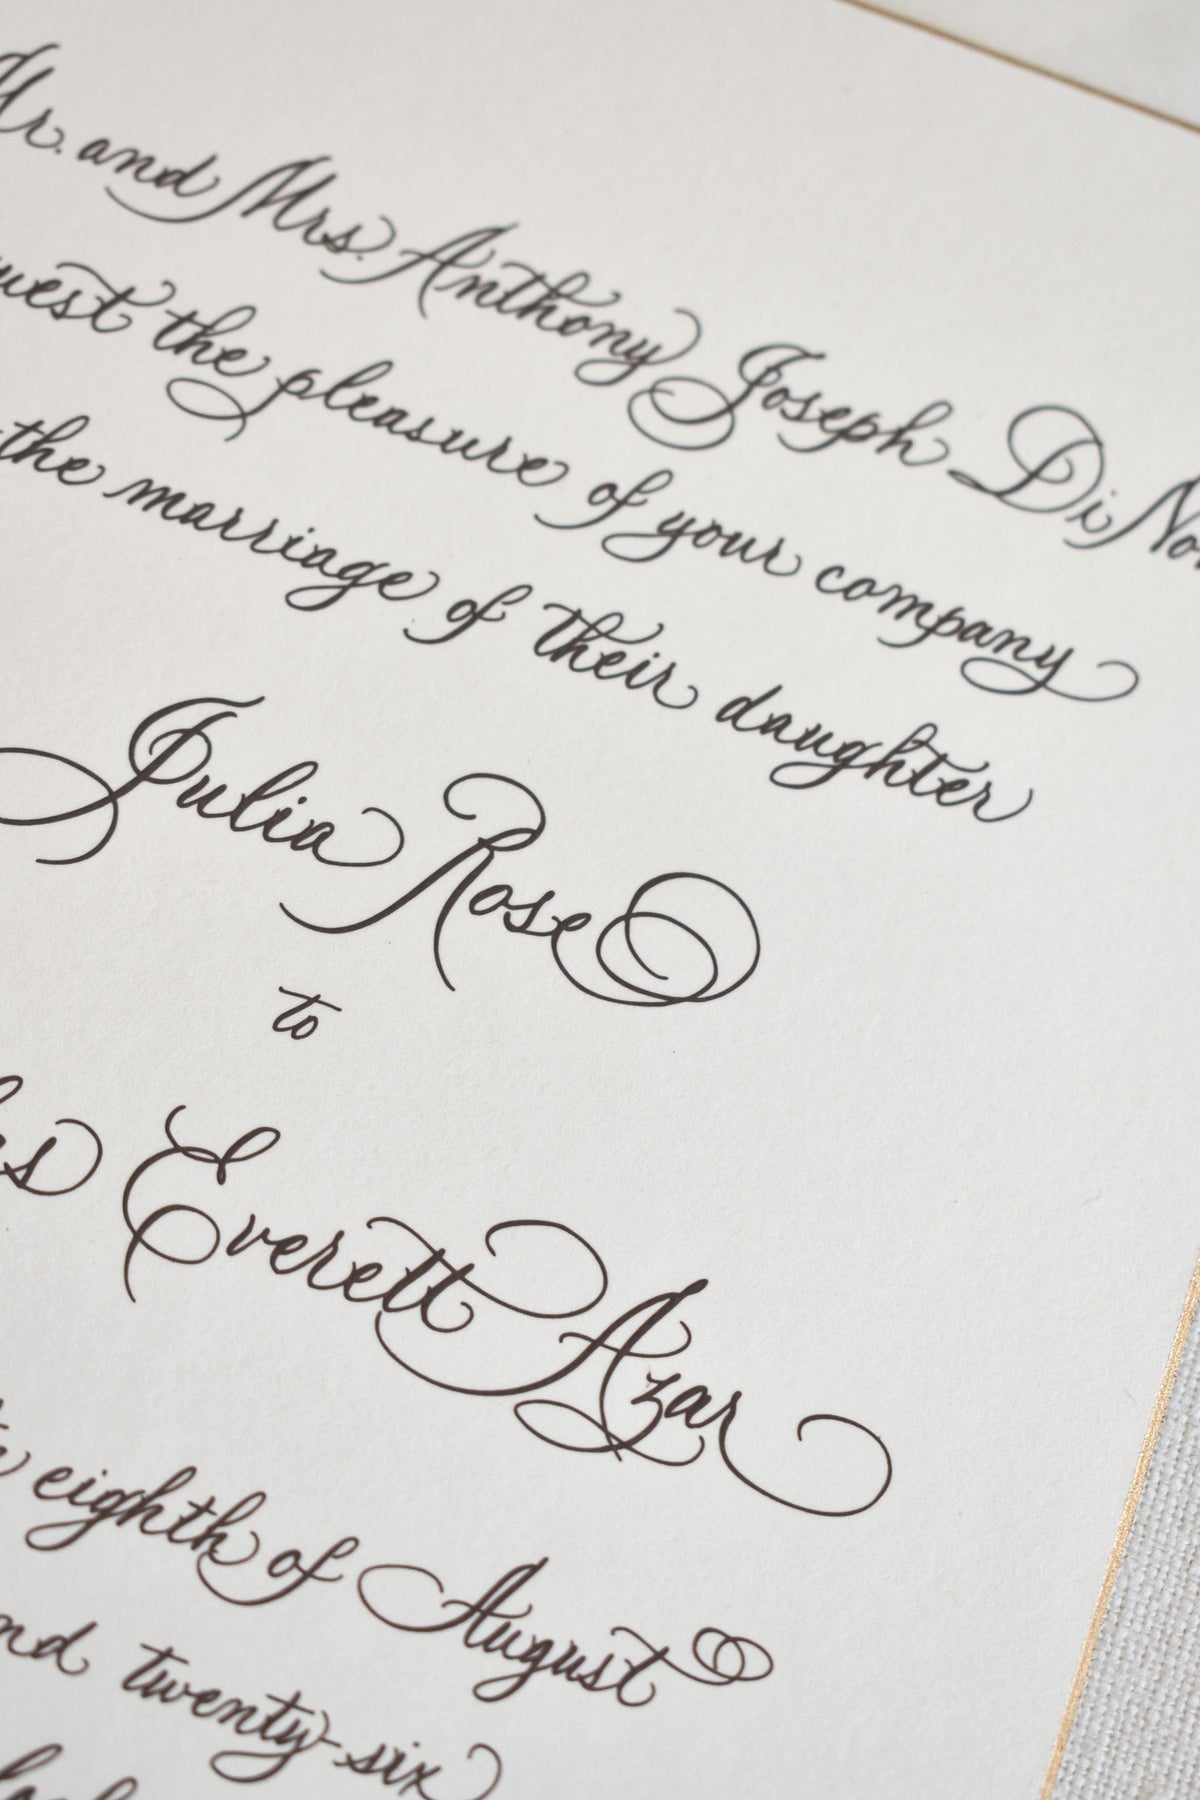 Mr. and Mrs. Anthony Joseph Di
the pleasure of your company
the marriage of their daughter
Julia Rose
to
Everett Azar
eighth of August
twenty-six